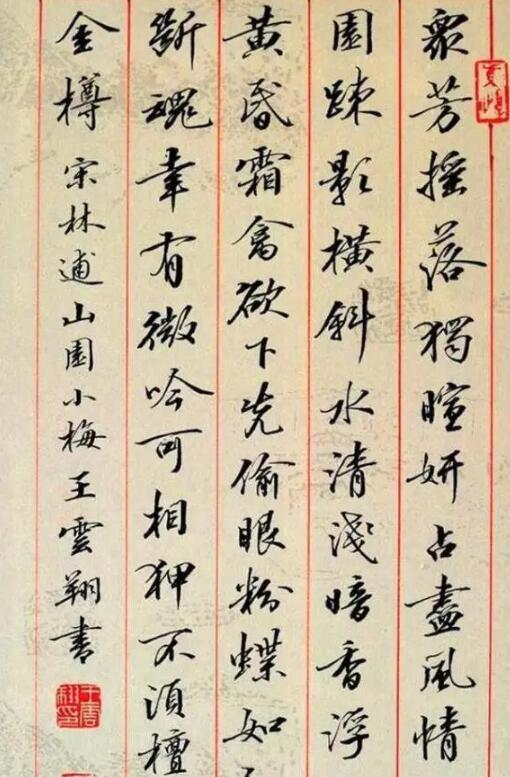 衆芳搖落獨暄妍占盡風情
園疎影橫斜水清淺暗香浮
黃昏霜禽欲下先偷眼粉蝶如
斷魂幸有微吟可相狎不須檀
金樽宋林逋山園小梅王雲翔書